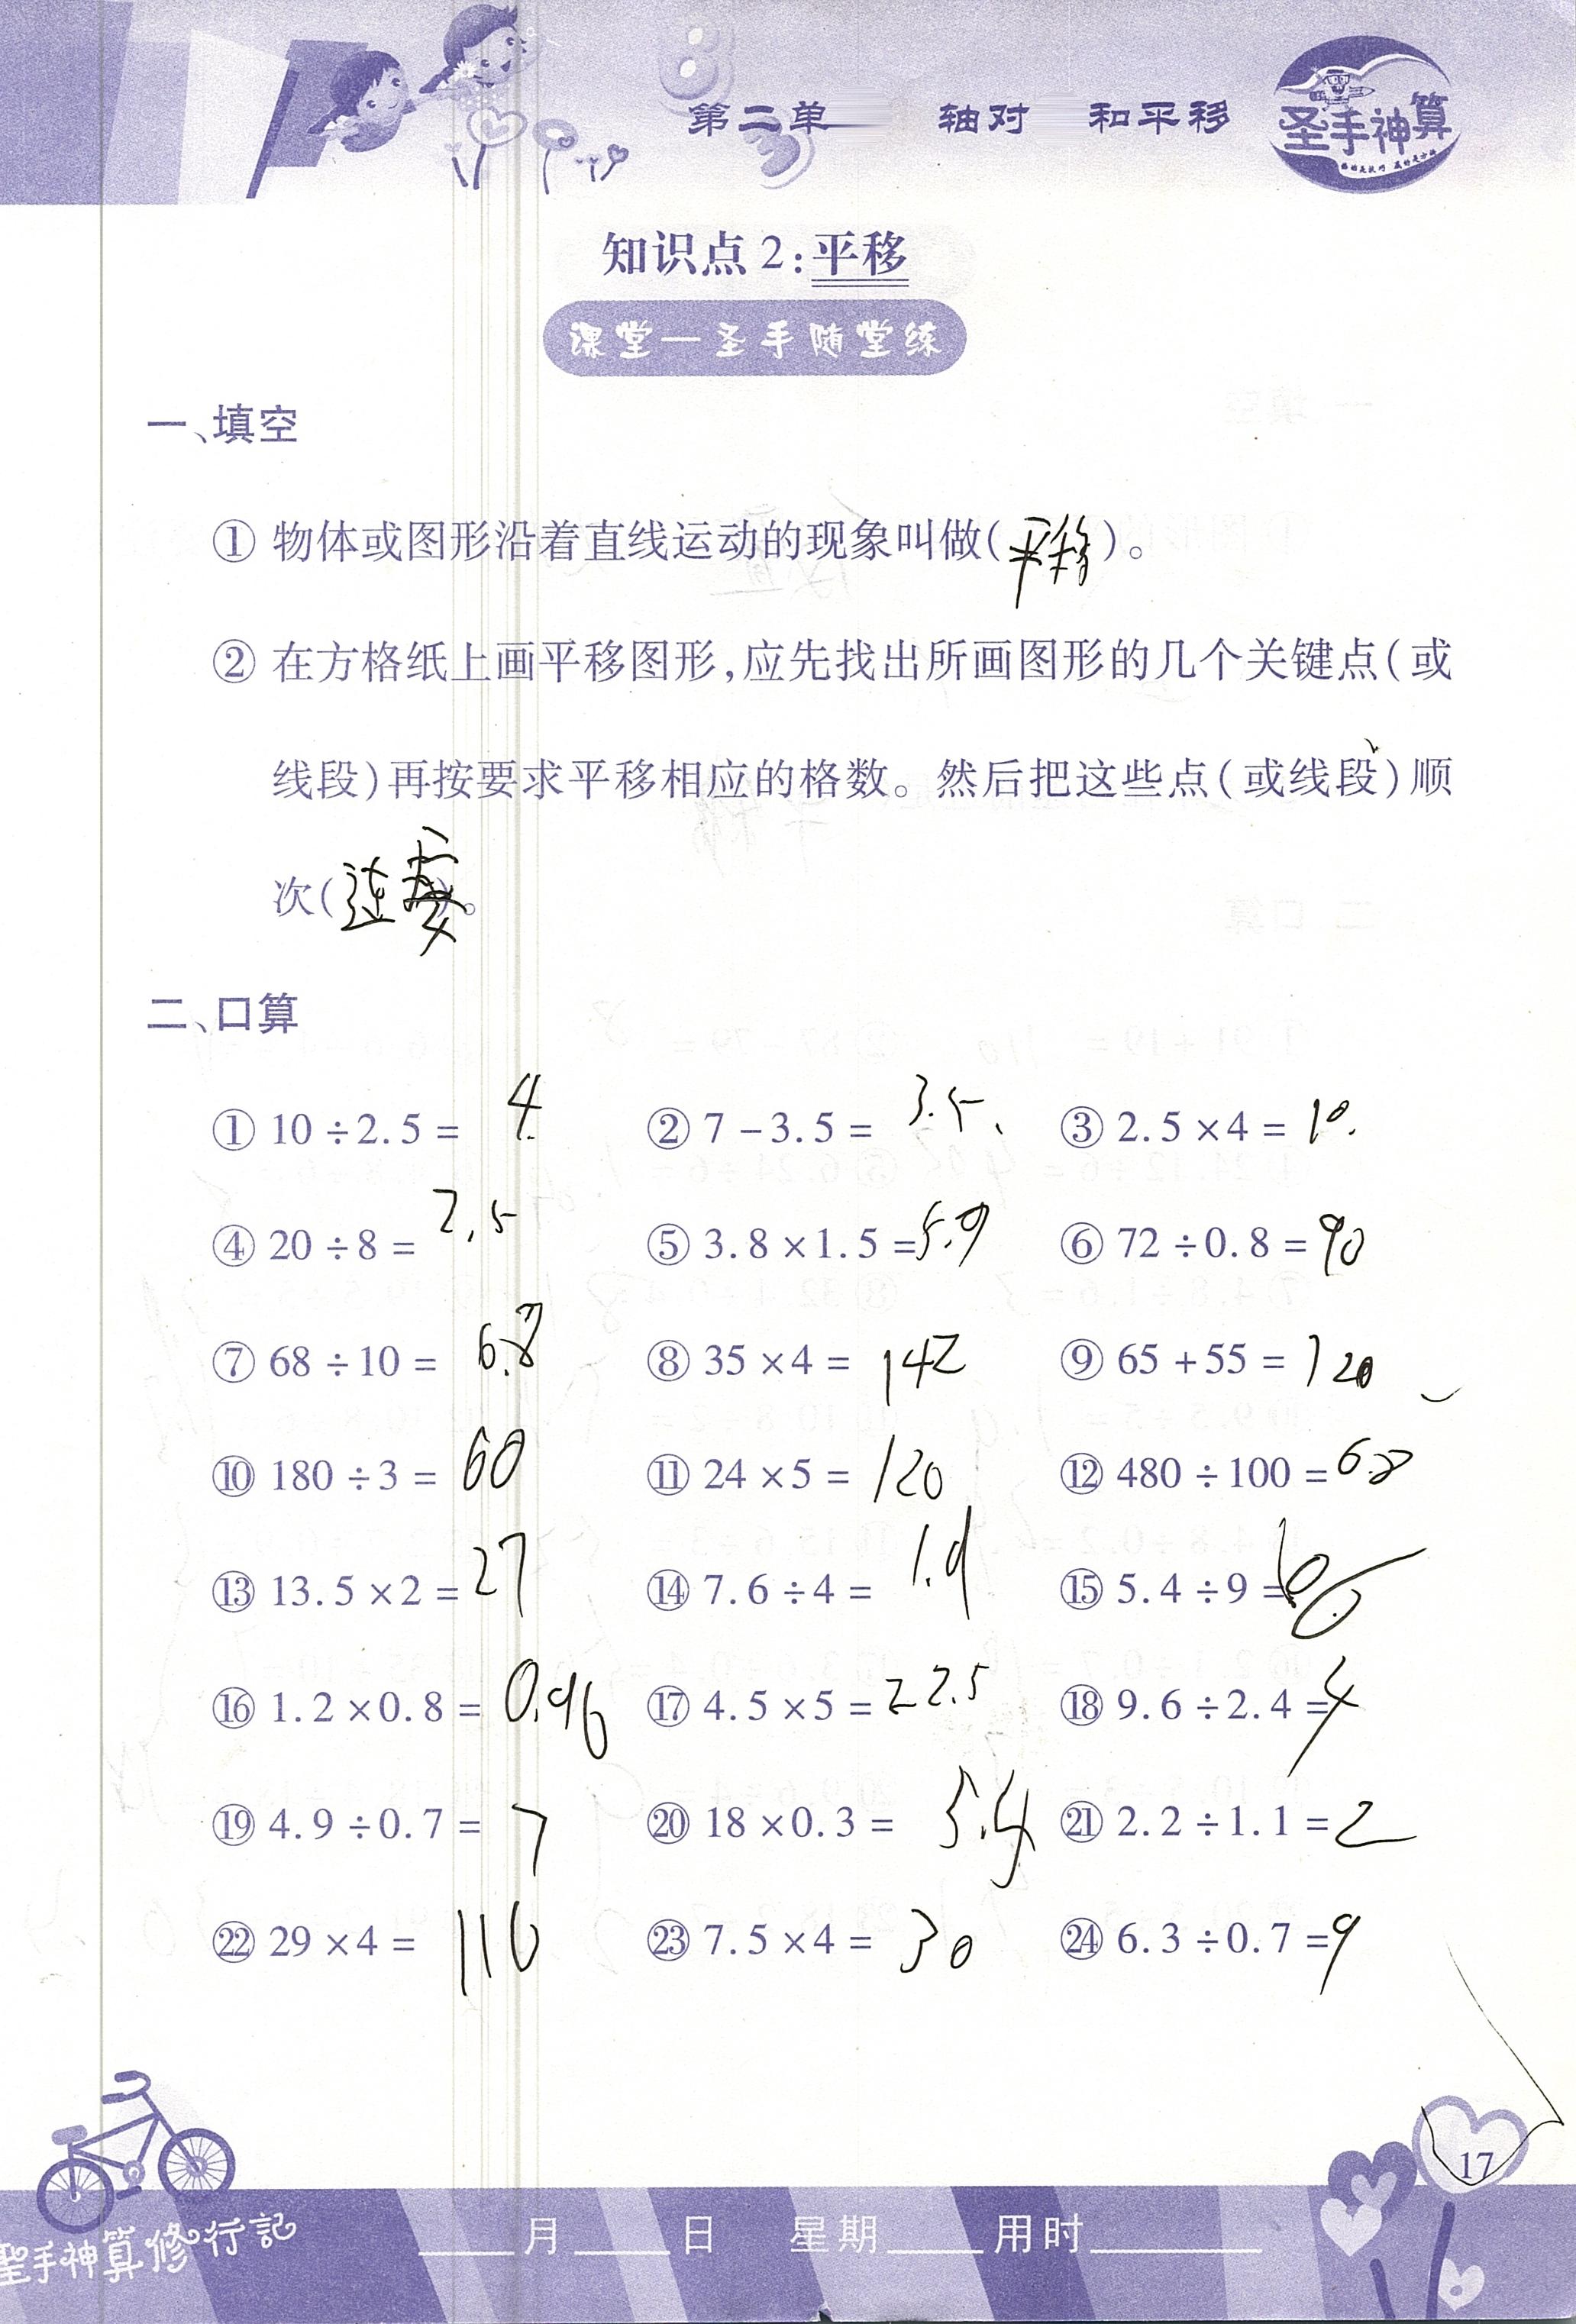 第二单 轴对 和平移
圣手神算
知识点2:平移
课堂—圣手随堂练
一、填空
① 物体或图形沿着直线运动的现象叫做(平移)。
② 在方格纸上画平移图形,应先找出所画图形的几个关键点(或
线段)再按要求平移相应的格数。然后把这些点(或线段)顺
次(连)。
二、口算
① 10÷2.5= 4 ② 7-3.5= 3.5 ③ 2.5×4= 10
④ 20÷8= 2.5 ⑤ 3.8×1.5=5.9 ⑥ 72÷0.8=90
⑦ 68÷10= 6.8 ⑧ 35×4= 142 ⑨ 65+55= 120
⑩ 180÷3= 60 ⑪ 24×5= 120 ⑫ 480÷100=6.8
⑬ 13.5×2=27 ⑭ 7.6÷4= 1.9 ⑮ 5.4÷9=
⑯ 1.2×0.8= 0.96 ⑰ 4.5×5=22.5 ⑱ 9.6÷2.4=4
⑲ 4.9÷0.7= 7 ⑳ 18×0.3= 5.4 ㉑ 2.2÷1.1=2
㉒ 29×4= 116 ㉓ 7.5×4= 30 ㉔ 6.3÷0.7=9
17
聖手神算修行記
月 日 星期 用时